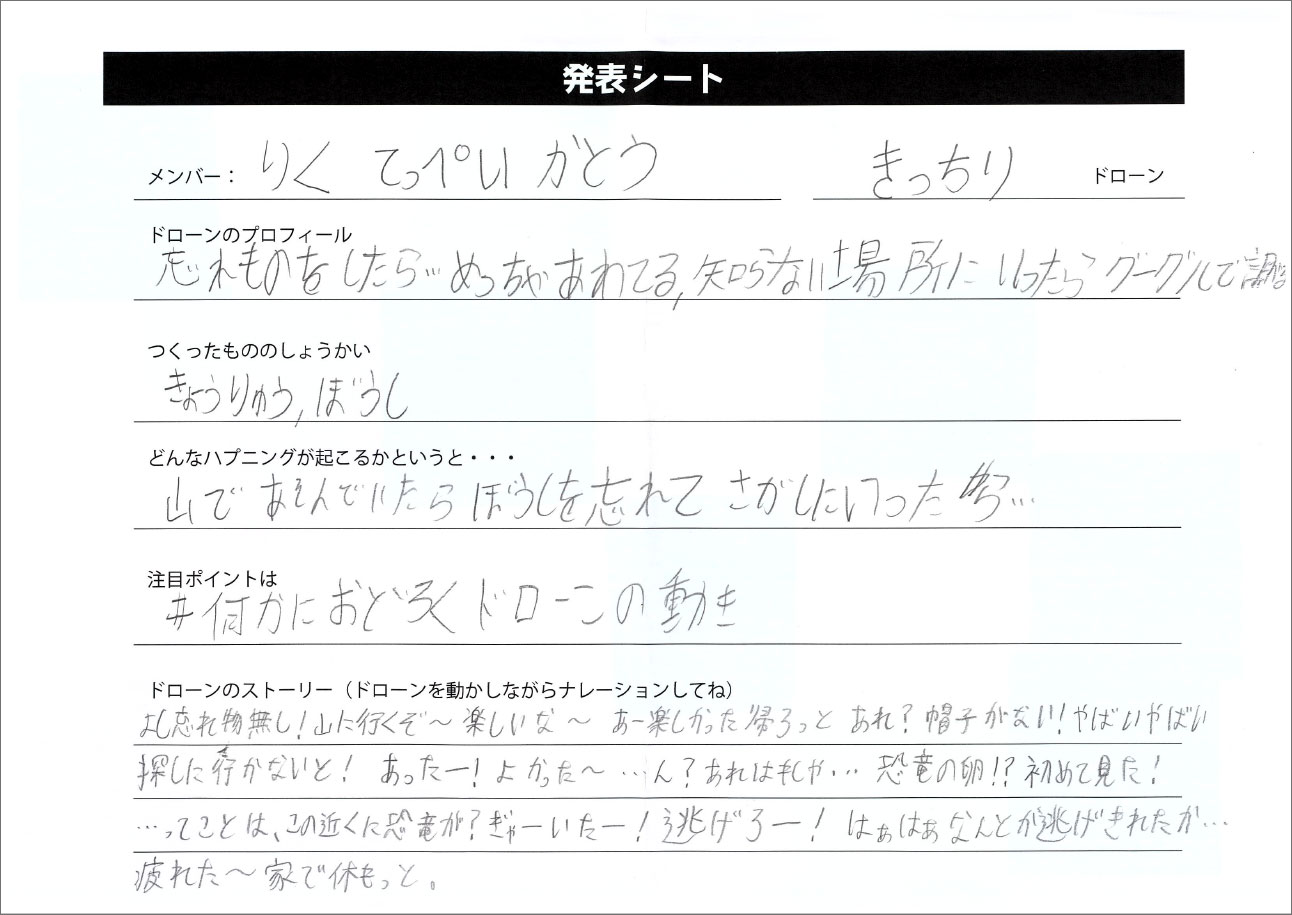 発表シート
メンバー： りく てっぺい かとう きっちり ドローン
ドローンのプロフィール
忘れものをしたら…めっちゃあわてる,知らない場所にいったらグーグルで調
つくったもののしょうかい
きょうりゅう,ぼうし
どんなハプニングが起こるかというと・・・
山であそんでいたらぼうしを忘れてさがしにいったら…
注目ポイントは
#何かにおどろくドローンの動き
ドローンのストーリー（ドローンを動かしながらナレーションしてね）
よし忘れ物無し!山に行くぞ〜 楽しいな〜 あー楽しかった帰ろっと あれ?帽子がない!やばいやばい
探しに行かないと! あったー!よかった〜…ん?あれはもしや… 恐竜の卵!?初めて見た!
…ってことは、この近くに恐竜が?ぎゃーいたー!逃げろー! はぁはぁなんとか逃げきれたか…
疲れた〜家で休もっと。